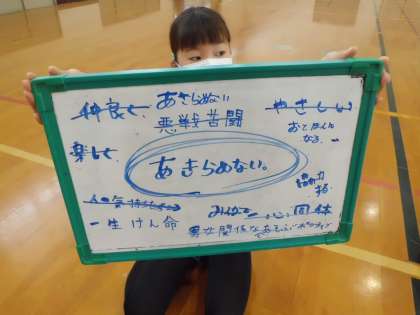 仲良く、
あきらめない
悪戦苦闘
やさしい
おとなに
なる。
楽しく、
あきらめない。
協力
する
一生けん命
みんなで
団体
男女関係なくあそぶ ポジティブ